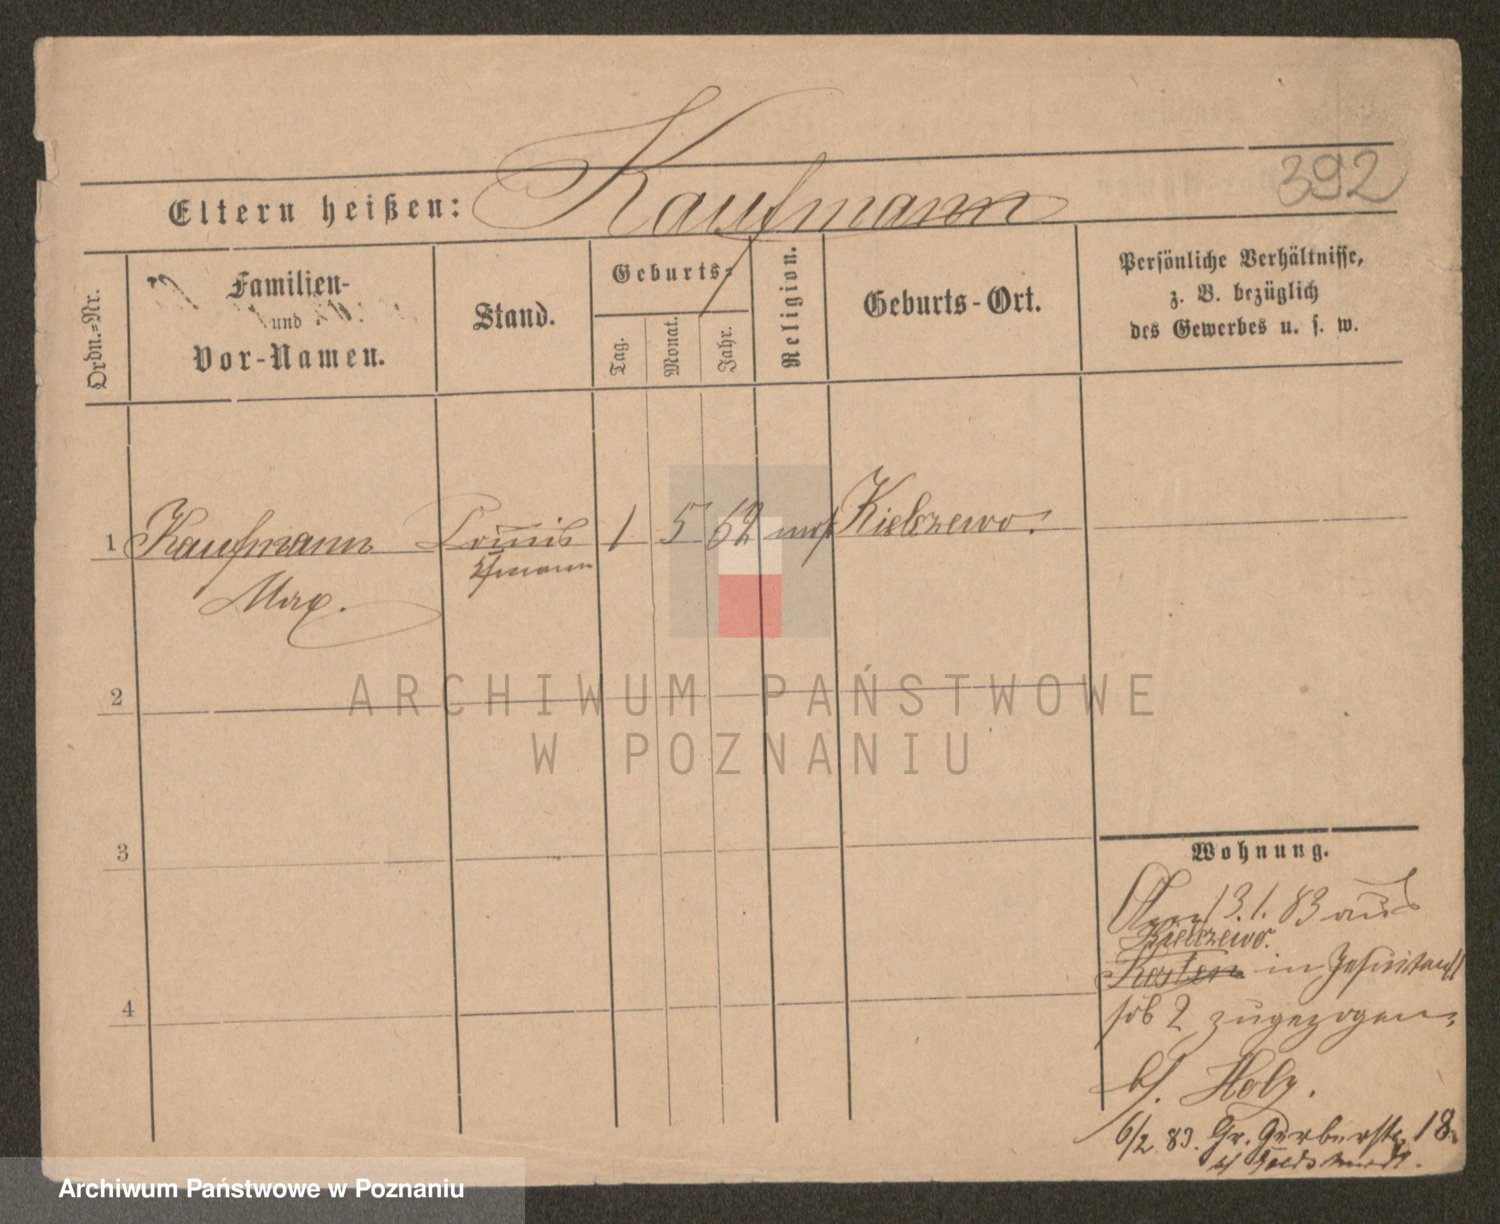 392
Eltern heißen: Kaufmann
Ordn.-Nr.
Familien-
und
Vor-Namen.
Stand.
Geburts-
Tag.
Monat.
Jahr.
Religion.
Geburts-Ort.
Persönliche Verhältnisse,
z. B. bezüglich
des Gewerbes u. s. w.
1 Kaufmann Commis 1 5 62 mos Kielczewo.
Kfmann
Max.
2
3
4
Wohnung.
13.1.83 aus
Kielczewo.
Kosten in
2 zugezogen
b/. Holz.
6/2 83. Gr. Gerberstr. 18.
b/ Goldschmidt.
ARCHIWUM PAŃSTWOWE
W POZNANIU
Archiwum Państwowe w Poznaniu